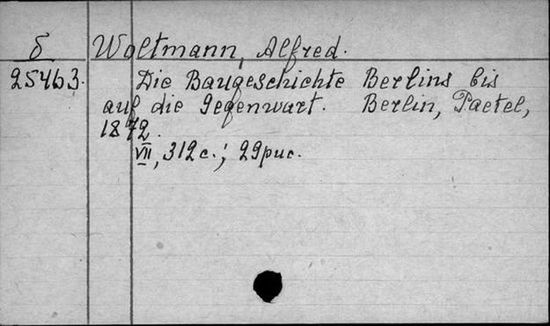 δ Woltmann, Alfred.
25463. Die Baugeschichte Berlins bis
auf die Gegenwart. Berlin, Paetel,
1872.
VII, 312 с.; 29 рис.